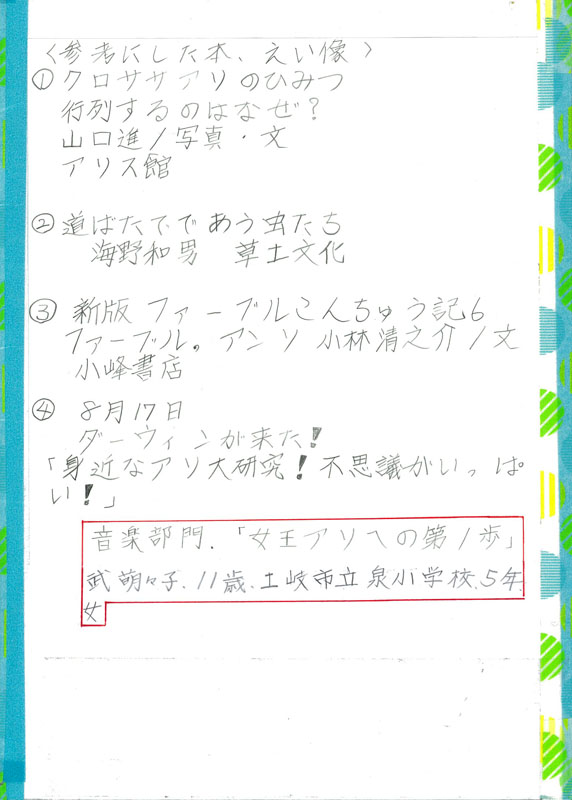 〈参考にした本、えい像〉
①クロササアリのひみつ
行列するのはなぜ?
山口進/写真・文
アリス館
②道ばたでであう虫たち
海野和男 草土文化
③新版 ファーブルこんちゅう記6
ファーブル。アンリ 小林清之介/文
小峰書店
④ 8月17日
ダーウィンが来た!
「身近なアリ大研究!不思議がいっぱ
い!」
音楽部門.「女王アリへの第1歩」
武萌々子.11歳.土岐市立泉小学校.5年.
女